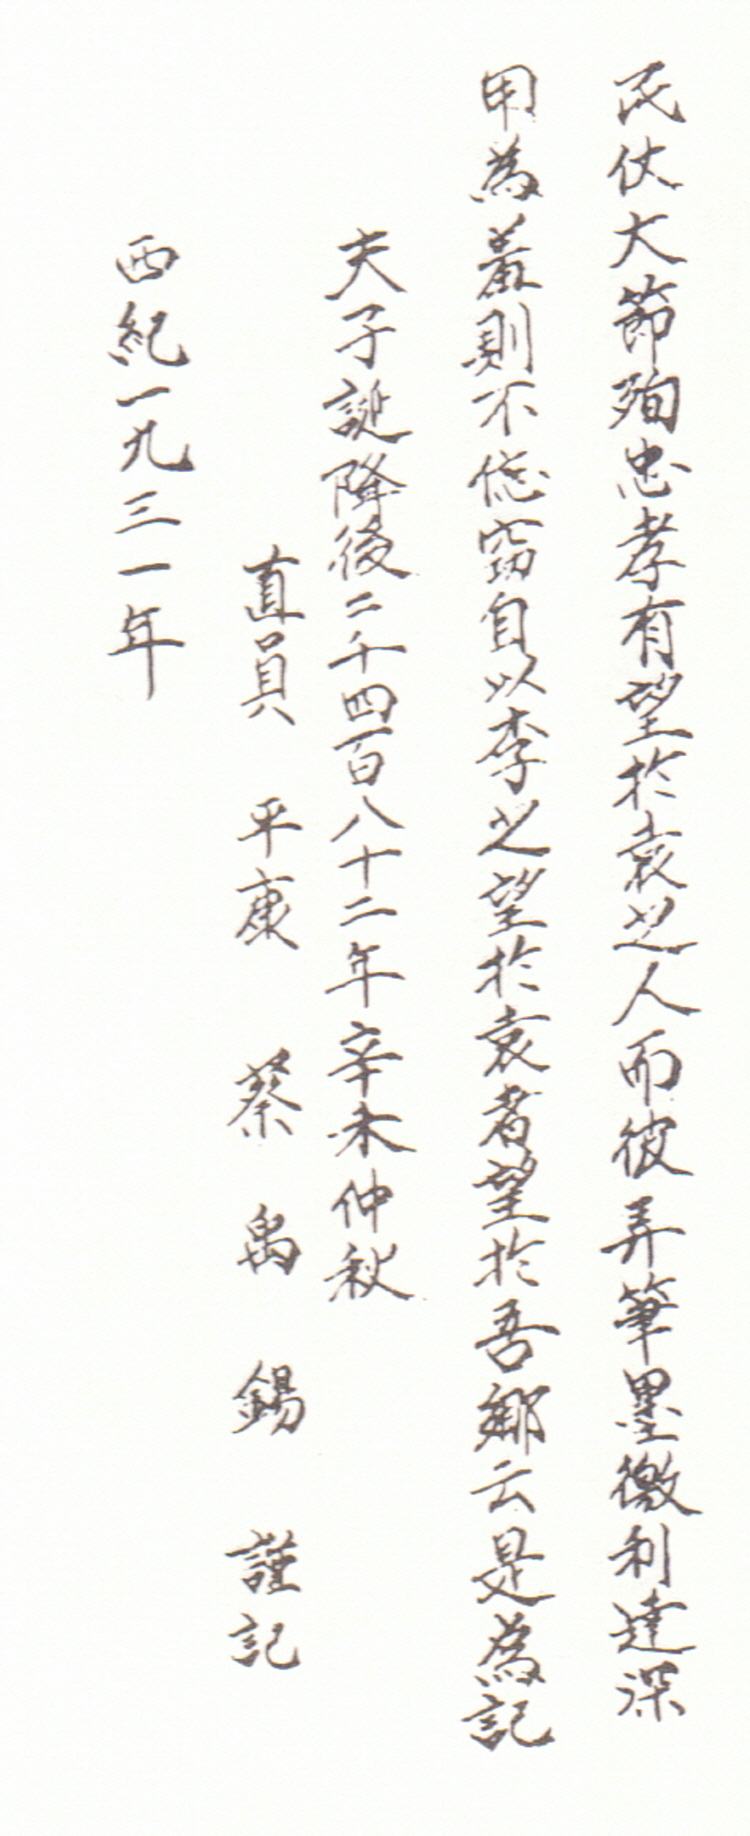 民仗大節殉忠孝有望於袁之人而彼弄筆墨徼利達深
用為羞則不佞竊自以李之望於袁者望於吾鄉云是為記
夫子誕降後二千四百八十二年辛未仲秋
直員 平康 蔡禹錫 謹記
西紀一九三一年